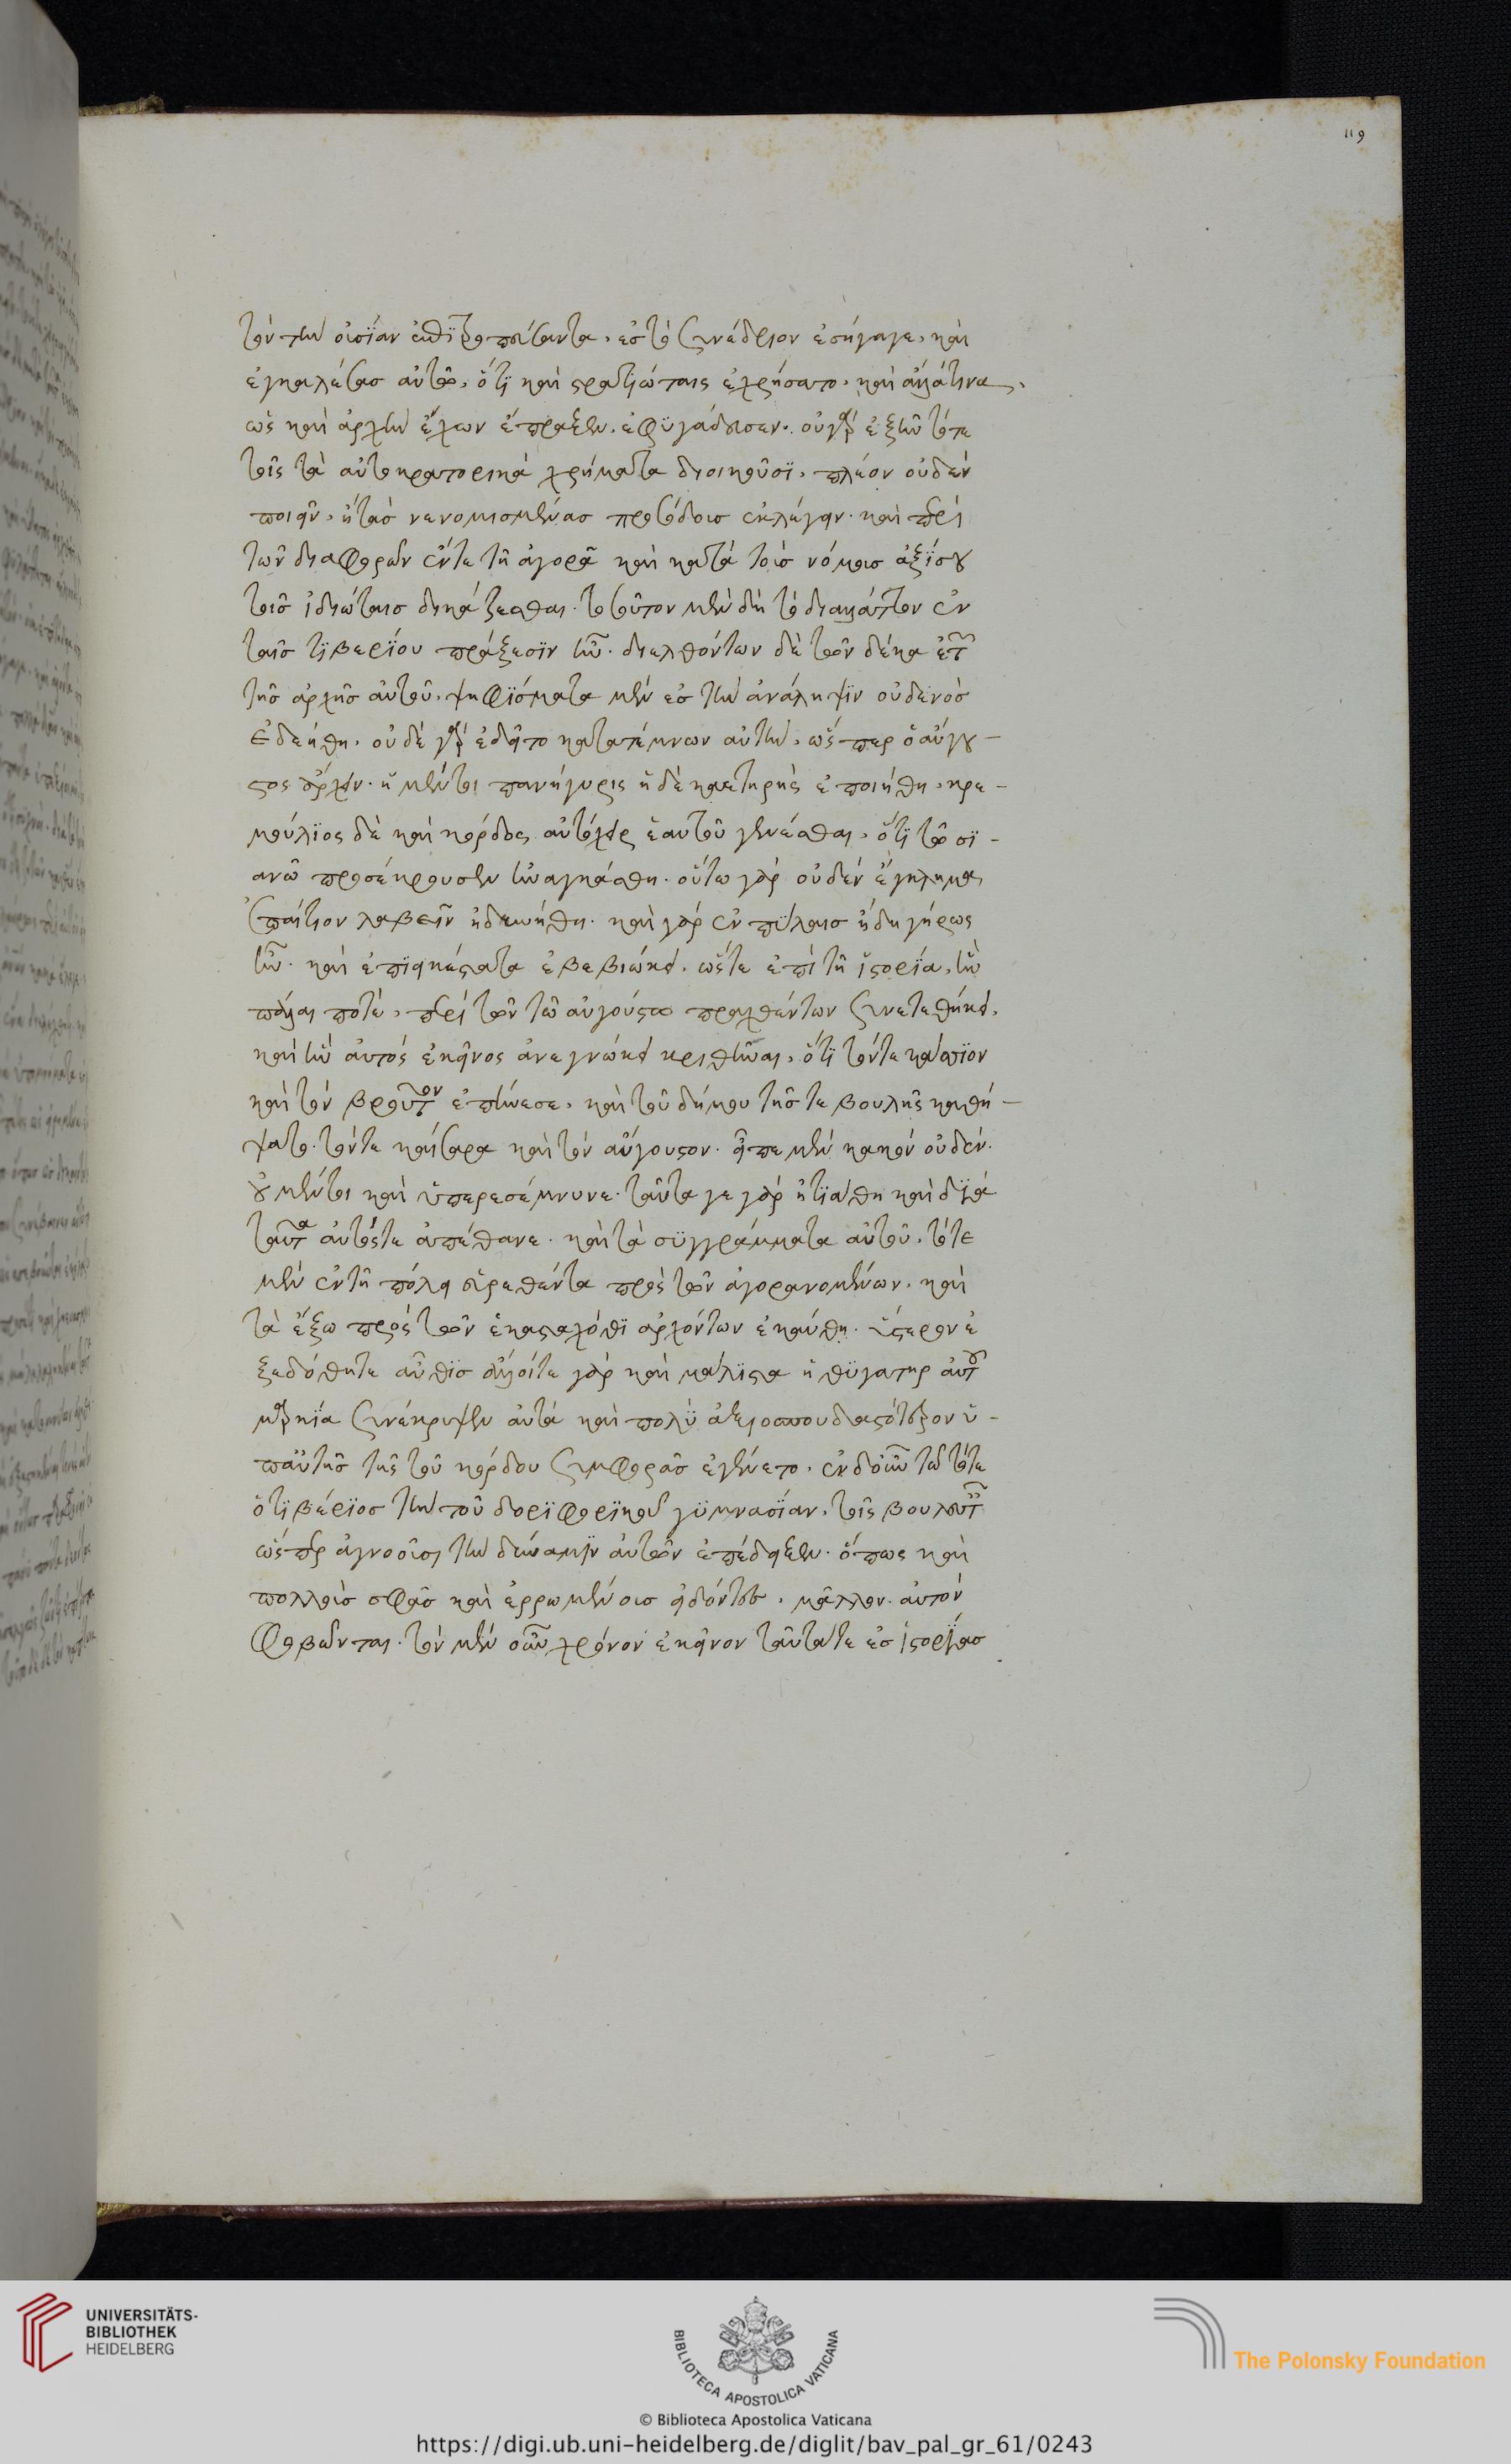 τὸν τὴν οὐσίαν ἐπιτροπεύσαντα, ἐς τὸ συνέδριον ἐσήγαγε, καὶ
ἐγκαλέσας αὐτῶ, ὅτι καὶ στρατιώταις ἐχρήσατο, καὶ ἄλλάτινα,
ὡς καὶ ἀρχὴν ἔχων ἔπραξεν, ἐφυγάδευσεν. οὐ γὰρ ἐξῆν τότε
τοῖς τὰ αὐτοκρατορικὰ χρήματα διοικοῦσι, πλέον οὐδὲν
ποιεῖν, ἢ τὰς νενομισμένας προσόδους ἐκλέγειν. καὶ περὶ
τῶν διαφορῶν ἔντε τῆ ἀγορᾶ καὶ κατὰ τοὺς νόμους ἀξίσου
τοῖς ἰδιώταις δικάζεσθαι. τοσοῦτον μὲν δὴ τὸ διαλάττον ἐν
ταῖς τιβερίου πράξεσιν ἦν. διελθόντων δὲ τῶν δέκα ἐτῶν
τῆς ἀρχῆς αὐτοῦ, ψηφίσματα μὲν ἐς τὴν ἀνάληψιν οὐδενὸς
ἐδεήθη. οὐδὲ γὰρ ἐδεῖτο κατατέμνων αὐτὴν, ὥσπερ ὁ αὔγου-
στος ἄρχειν. ἡ μέντοι πανήγυρις ἡ δεκαετηρὶς ἐποιήθη. κρε-
μούλιος δὲ καὶ κόρδος αὐτόχειρ ἑαυτοῦ γενέσθαι, ὅτι τῶ σι-
ανῶ προσέκρουσεν ἠναγκάσθη. οὕτω γὰρ οὐδὲν ἔγκλημα
ἐπαίτιον λαβεῖν ἠδυνήθη. καὶ γὰρ ἐν πύλαις ἤδη γήρως
ἦν. καὶ ἐπιεικέστατα ἐβεβιώκει. ὥστε ἐπὶ τῆ ἱστορία, ἣν
πάλαι ποτὲ, περὶ τῶν τῶ αὐγούστω πραχθέντων συνετεθήκει,
καὶ ἣν αὐτὸς ἐκεῖνος ἀνεγνώκει κριθῆναι, ὅτι τόντε κάσσιον
καὶ τὸν βροῦτον ἐπήνεσε, καὶ τοῦ δήμου τῆς τε βουλῆς καθή-
ψατο. τόντε καίσαρα καὶ τὸν αὔγουστον. εἶπε μὲν κακὸν οὐδέν.
οὐ μέντοι καὶ ὑπερεσέμνυνε. ταῦτα γε γὰρ ἠτιάθη καὶ διὰ
ταῦτα αὐτόςτε ἀπέθανε. καὶ τὰ συγγράμματα αὐτοῦ, τότε
μὲν ἐν τῆ πόλει εὑρεθέντα πρὸς τῶν ἀγορανομένων, καὶ
τὰ ἔξω πρὸς τῶν ἑκασταχόθι ἀρχόντων ἐκαύθη. ὕστερον ἐ
ξεδόθητε αὖθις ἄλλοίτε γὰρ καὶ μάλιστα ἡ θυγατὴρ αὐτοῦ
μαρκία συνέκρυψεν αὐτὰ καὶ πολὺ ἀξιοσπουδαστότερον ὑ-
παὐτῆς τῆς τοῦ κόρδου συμφορᾶς ἐγένετο. ἐν δ οὖν τῶ τότε
ὁ τιβέριος τὴν τοῦ δορυφορικοῦ γυμνασίαν, τοῖς βουλευταῖς
ὥσπερ ἀγνοοῦσι τὴν δύναμιν αὐτῶν ἐπέδειξεν. ὅπως καὶ
πολλοὺς σφᾶς καὶ ἐρρωμένους ἰδόντες, μᾶλλον αὐτὸν
φοβῶνται. τὸν μὲν οὖν χρόνον ἐκεῖνον ταῦτάτε ἐς ἱστορίας
119
UNIVERSITÄTS-
BIBLIOTHEK
HEIDELBERG
BIBLIOTECA APOSTOLICA VATICANA
© Biblioteca Apostolica Vaticana
The Polonsky Foundation
https://digi.ub.uni-heidelberg.de/diglit/bav_pal_gr_61/0243